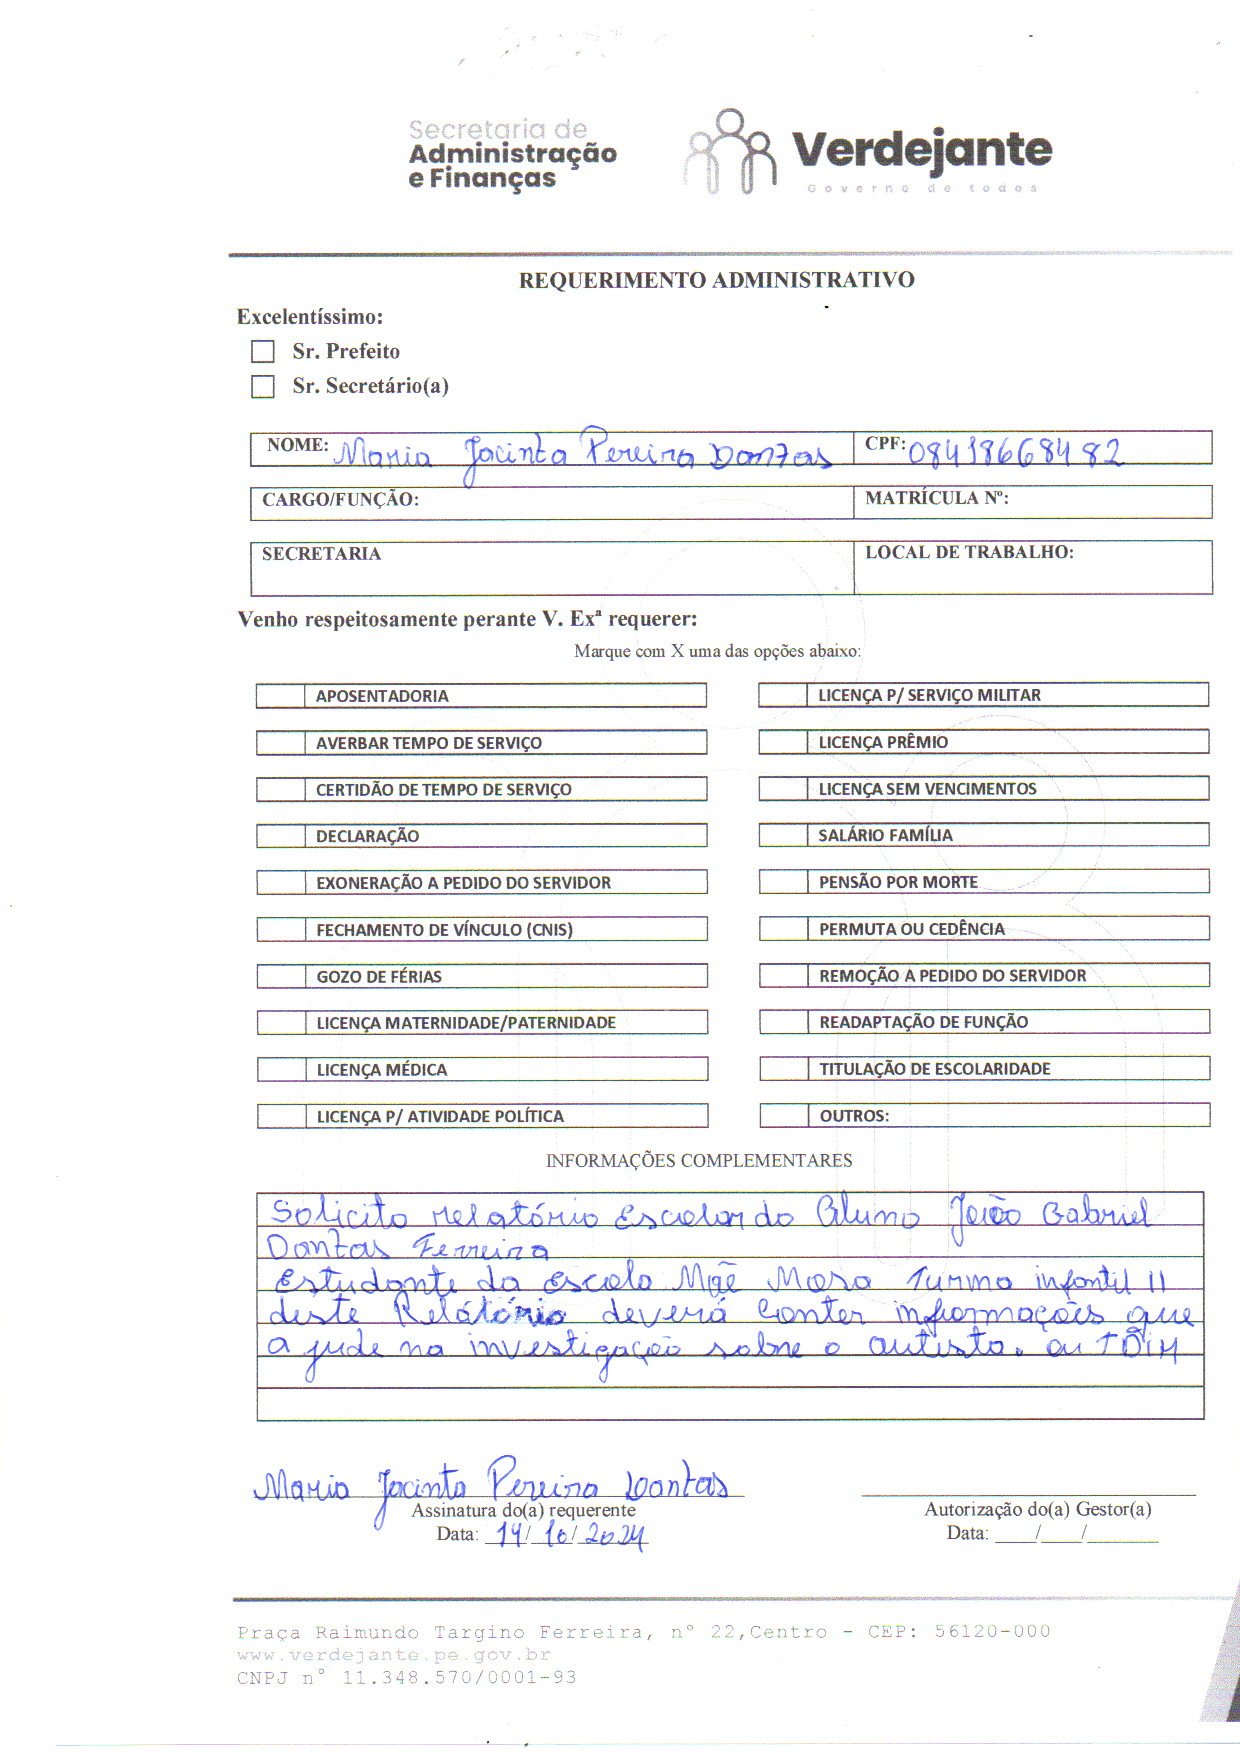 Secretaria de
Administração
e Finanças
Verdejante
Governo de todos
REQUERIMENTO ADMINISTRATIVO
Excelentíssimo:
Sr. Prefeito
Sr. Secretário(a)
NOME: Maria Jacinta Pereira Dantas CPF: 08418668482
CARGO/FUNÇÃO: MATRÍCULA Nº:
SECRETARIA LOCAL DE TRABALHO:
Venho respeitosamente perante V. Exª requerer:
Marque com X uma das opções abaixo:
APOSENTADORIA LICENÇA P/ SERVIÇO MILITAR
AVERBAR TEMPO DE SERVIÇO LICENÇA PRÊMIO
CERTIDÃO DE TEMPO DE SERVIÇO LICENÇA SEM VENCIMENTOS
DECLARAÇÃO SALÁRIO FAMÍLIA
EXONERAÇÃO A PEDIDO DO SERVIDOR PENSÃO POR MORTE
FECHAMENTO DE VÍNCULO (CNIS) PERMUTA OU CEDÊNCIA
GOZO DE FÉRIAS REMOÇÃO A PEDIDO DO SERVIDOR
LICENÇA MATERNIDADE/PATERNIDADE READAPTAÇÃO DE FUNÇÃO
LICENÇA MÉDICA TITULAÇÃO DE ESCOLARIDADE
LICENÇA P/ ATIVIDADE POLÍTICA OUTROS:
INFORMAÇÕES COMPLEMENTARES
Solicito relatório Escolar do Aluno João Gabriel
Dantas Ferreira
Estudante da Escola Mãe Mosa Turma infantil II
deste Relátório deverá Conter informações que
a jude na investigação sobre o autista. ou TDAH
Maria Jacinta Pereira Dantas
Assinatura do(a) requerente Autorização do(a) Gestor(a)
Data: 14/10/2024 Data: ____/____/_______
Praça Raimundo Targino Ferreira, nº 22,Centro - CEP: 56120-000
www.verdejante.pe.gov.br
CNPJ nº 11.348.570/0001-93